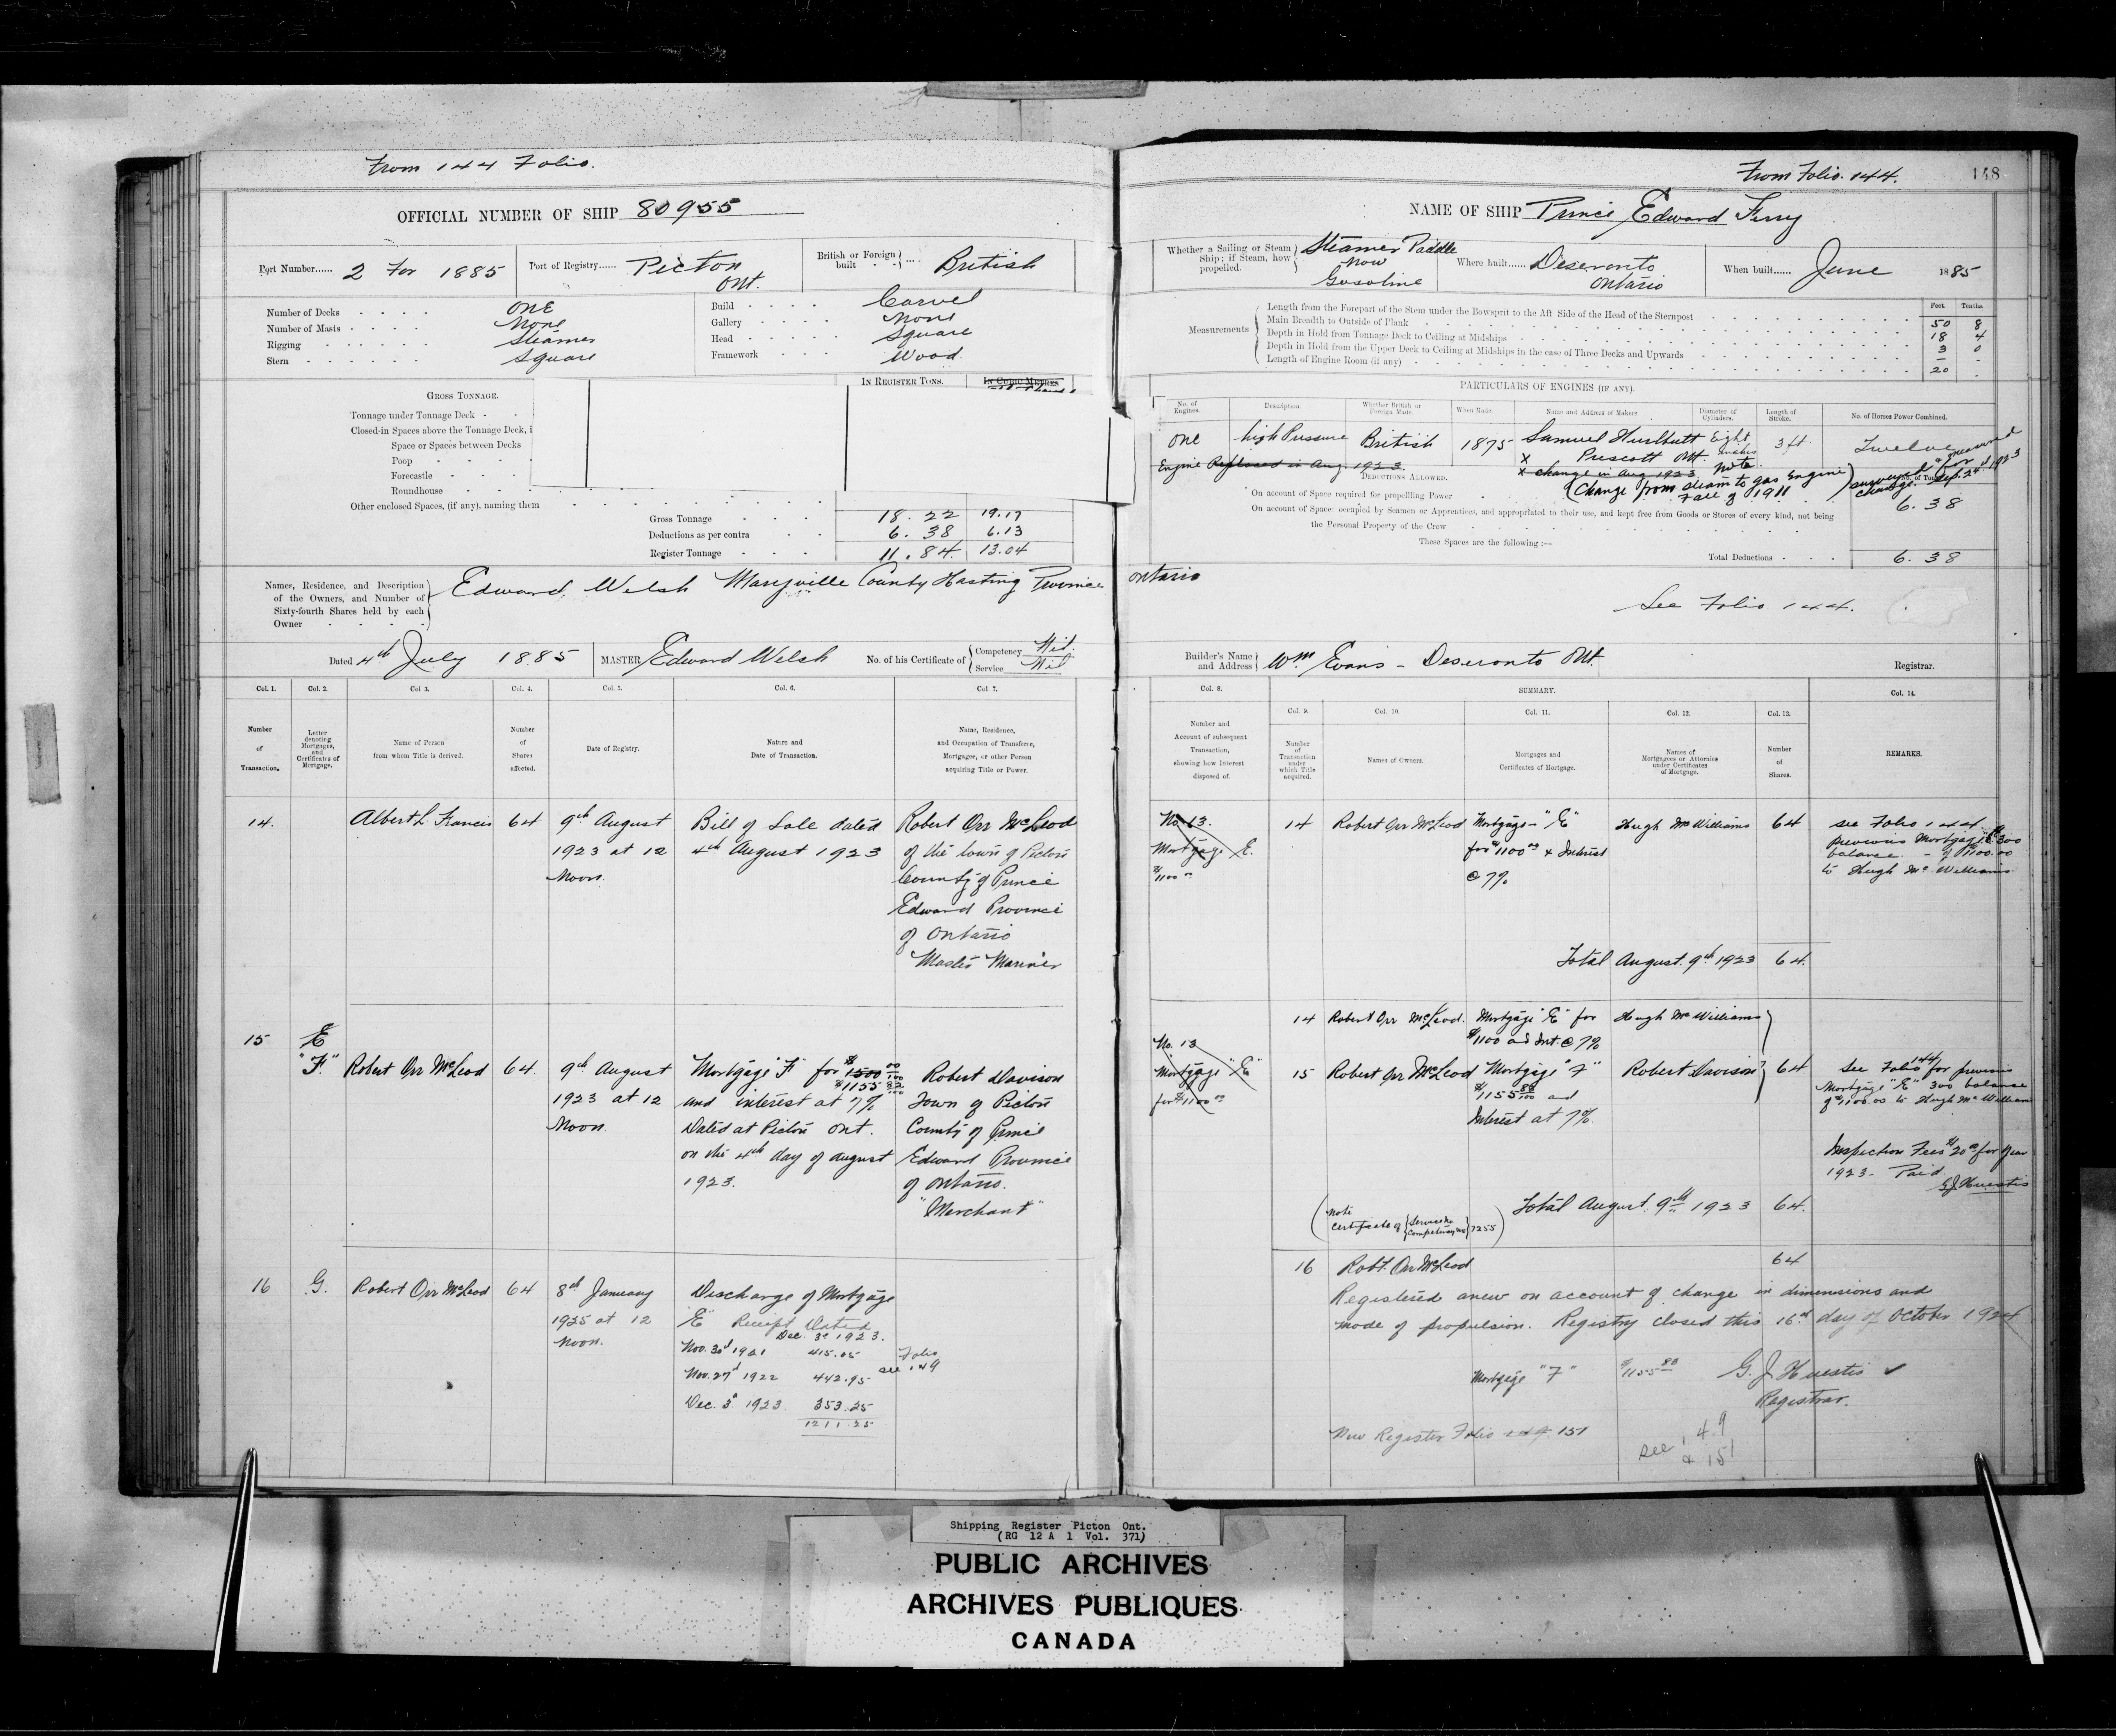 From 144 Folio.
OFFICIAL NUMBER OF SHIP 80955
Port Number...... 2 For 1885
Port of Registry...... Picton Ont.
British or Foreign built British
Number of Decks One
Number of Masts None
Rigging Steamer
Stern Square
Build Carvel
Gallery None
Head Square
Framework Wood
GROSS TONNAGE.
IN REGISTER TONS.
IN CUBIC METRES
Tonnage under Tonnage Deck
Closed-in Spaces above the Tonnage Deck, i
Space or Spaces between Decks
Poop
Forecastle
Roundhouse
Other enclosed Spaces, (if any), naming them
Gross Tonnage 18.22 19.17
Deductions as per contra 6.38 6.13
Register Tonnage 11.84 13.04
Names, Residence, and Description of the Owners, and Number of Sixty-fourth Shares held by each Owner
Edward Welsh Marysville County Hasting Province
Dated 4th July 1885
MASTER Edward Welsh
No. of his Certificate of Competency Nil. Service Nil
Col. 1. Col. 2. Col. 3. Col. 4. Col. 5. Col. 6. Col. 7.
Number of Transaction.
Letter denoting Mortgages, and Certificates of Mortgage.
Name of Person from whom Title is derived.
Number of Shares affected.
Date of Registry.
Nature and Date of Transaction.
Name, Residence, and Occupation of Transferee, Mortgagee, or other Person acquiring Title or Power.
14. Albert L. Francis 64 9th August Bill of Sale dated Robert Orr McLeod
1923 at 12 4th August 1923 of the town of Picton
Noon. County of Prince
Edward Province
of Ontario
"Master Mariner
15 E
"F" Robert Orr McLeod 64 9th August Mortgage "F" for $1500 00/100 Robert Davison
$1155 82/100
1923 at 12 and interest at 7% Town of Picton
Noon. Dated at Picton Ont. County of Prince
on the 4th day of August Edward Province
1923. of Ontario.
"Merchant"
16 G. Robert Orr McLeod 64 8th January Discharge of Mortgage
1925 at 12 "E" Receipt Dated
Noon. Dec. 3d 1923.
Nov. 30th 1921 415.05 Folio
Nov. 27th 1922 442.95 see 149
Dec. 3d 1923 353.25
1211.25
From Folio. 144.
148
NAME OF SHIP Prince Edward Ferry
Whether a Sailing or Steam Ship; if Steam, how propelled. Steamer Paddle
Now
Gasoline
Where built...... Deseronto Ontario
When built...... June 1885
Measurements
Feet. Tenths.
Length from the Forepart of the Stem under the Bowsprit to the Aft Side of the Head of the Sternpost 50 8
Main Breadth to Outside of Plank 18 4
Depth in Hold from Tonnage Deck to Ceiling at Midships 3 0
Depth in Hold from the Upper Deck to Ceiling at Midships in the case of Three Decks and Upwards - -
Length of Engine Room (if any) 20 -
PARTICULARS OF ENGINES (IF ANY).
No. of Engines. Description. Whether British or Foreign Made. When Made. Name and Address of Makers. Diameter of Cylinders. Length of Stroke. No. of Horses Power Combined.
One high Pressure British 1875 Samuel Hurlbutt Eight 3 ft. Twelve
x Prescott Ont. inches
Engine Replaced in Aug. 1923. x change in Aug 1923 Note.
(Change from steam to gas Engine)
Fall of 1911
change. Sep. 2nd 1923
DEDUCTIONS ALLOWED.
On account of Space required for propelling Power 6.38
On account of Space occupied by Seamen or Apprentices, and appropriated to their use, and kept free from Goods or Stores of every kind, not being
the Personal Property of the Crew
These Spaces are the following:—
Total Deductions 6.38
Ontario
See Folio 144.
Builder's Name and Address Wm Evans - Deseronto Ont.
Registrar.
Col. 8. SUMMARY. Col. 14.
Col. 9. Col. 10. Col. 11. Col. 12. Col. 13.
Number and Account of subsequent Transaction, showing how Interest disposed of.
Number of Transaction under which Title acquired.
Names of Owners.
Mortgages and Certificates of Mortgage.
Names of Mortgagees or Attornies under Certificates of Mortgage.
Number of Shares.
REMARKS.
No. 13. 14 Robert Orr McLeod Mortgage - "E" Hugh McWilliams 64 see Folio 144
Mortgage E. for $1100 00 & Interest previous Mortgage "E" 300
$1100 00 @ 7% balance - of $1100.00
to Hugh McWilliams.
Total August. 9th 1923 64.
14 Robert Orr McLeod. Mortgage "E" for Hugh McWilliams
$1100 and Int. @ 7%
No. 13 15 Robert Orr McLeod Mortgage "F" Robert Davison 64 See Folio 144 for previous
Mortgage "E" $1155 82/100 and Mortgage "E" 300 balance
for $1100 00 Interest at 7%. of $1100.00 to Hugh McWilliams
Inspection Fees $20 00 for year
1923 - Paid.
G J Huestis
(Note Certificate of Service No Competency No 7255) Total August. 9th 1923 64.
16 Robt. Orr McLeod 64
Registered anew on account of change in dimensions and
mode of propulsion. Registry closed this 16th day of October 1924
Mortgage "F" $1155 82 G. J Huestis
Registrar.
New Register Folio 149. 151
see 149
& 151
Shipping Register Picton Ont.
(RG 12 A 1 Vol. 371)
PUBLIC ARCHIVES
ARCHIVES PUBLIQUES
CANADA